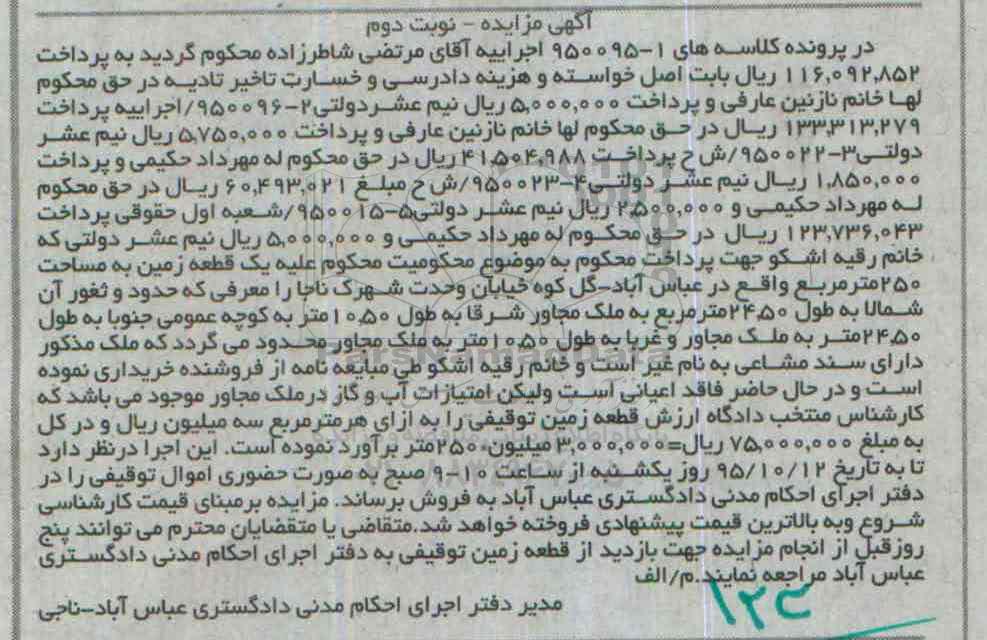 آگهی مزایده - نوبت دوم
در پرونده کلاسه های ۱-۹۵۰۰۹۵ اجراییه آقای مرتضی شاطرزاده محکوم گردید به پرداخت
۱۱۶,۰۹۲,۸۵۲ ریال بابت اصل خواسته و هزینه دادرسی و خسارت تاخیر تادیه در حق محکوم
لها خانم نازنین عارفی و پرداخت ۵,۰۰۰,۰۰۰ ریال نیم عشردولتی۲-۹۵۰۰۹۶/اجراییه پرداخت
۱۳۳,۳۱۳,۲۷۹ ریال در حق محکوم لها خانم نازنین عارفی و پرداخت ۵,۷۵۰,۰۰۰ ریال نیم عشر
دولتی۳-۹۵۰۰۲۲/ش ح پرداخت ۴۱,۵۰۴,۹۸۸ ریال در حق محکوم له مهرداد حکیمی و پرداخت
۱,۸۵۰,۰۰۰ ریال نیم عشر دولتی۴-۹۵۰۰۲۳/ش ح مبلغ ۶۰,۴۹۳,۰۲۱ ریال در حق محکوم
له مهرداد حکیمی و ۲,۵۰۰,۰۰۰ ریال نیم عشر دولتی۵-۹۵۰۰۱۵/شعبه اول حقوقی پرداخت
۱۲۳,۷۳۶,۰۴۳ ریال در حق محکوم له مهرداد حکیمی و ۵,۰۰۰,۰۰۰ ریال نیم عشر دولتی که
خانم رقیه اشکو جهت پرداخت محکوم به موضوع محکومیت محکوم علیه یک قطعه زمین به مساحت
۲۵۰مترمربع واقع در عباس آباد-گل کوه خیابان وحدت شهرک ناجا را معرفی که حدود و ثغور آن
شمالا به طول ۲۴,۵۰مترمربع به ملک مجاور شرقا به طول ۱۰,۵۰متر به کوچه عمومی جنوبا به طول
۲۴,۵۰متر به ملک مجاور و غربا به طول ۱۰,۵۰ متر به ملک مجاور محدود می گردد که ملک مذکور
دارای سند مشاعی به نام غیر است و خانم رقیه اشکو طی مبایعه نامه از فروشنده خریداری نموده
است و در حال حاضر فاقد اعیانی است ولیکن امتیازات آب و گاز در ملک مجاور موجود می باشد که
کارشناس منتخب دادگاه ارزش قطعه زمین توقیفی را به ازای هرمترمربع سه میلیون ریال و در کل
به مبلغ ۷۵,۰۰۰,۰۰۰ ریال=۳,۰۰۰,۰۰۰ میلیون*۲۵۰متر برآورد نموده است. این اجرا درنظر دارد
تا به تاریخ ۹۵/۱۰/۱۲ روز یکشنبه از ساعت ۱۰-۹ صبح به صورت حضوری اموال توقیفی را در
دفتر اجرای احکام مدنی دادگستری عباس آباد به فروش برساند. مزایده برمبنای قیمت کارشناسی
شروع وبه بالاترین قیمت پیشنهادی فروخته خواهد شد.متقاضی یا متقضایان محترم می توانند پنج
روزقبل از انجام مزایده جهت بازدید از قطعه زمین توقیفی به دفتر اجرای احکام مدنی دادگستری
عباس آباد مراجعه نمایند.م/الف
مدیر دفتر اجرای احکام مدنی دادگستری عباس آباد-ناجی
ParsNamadData